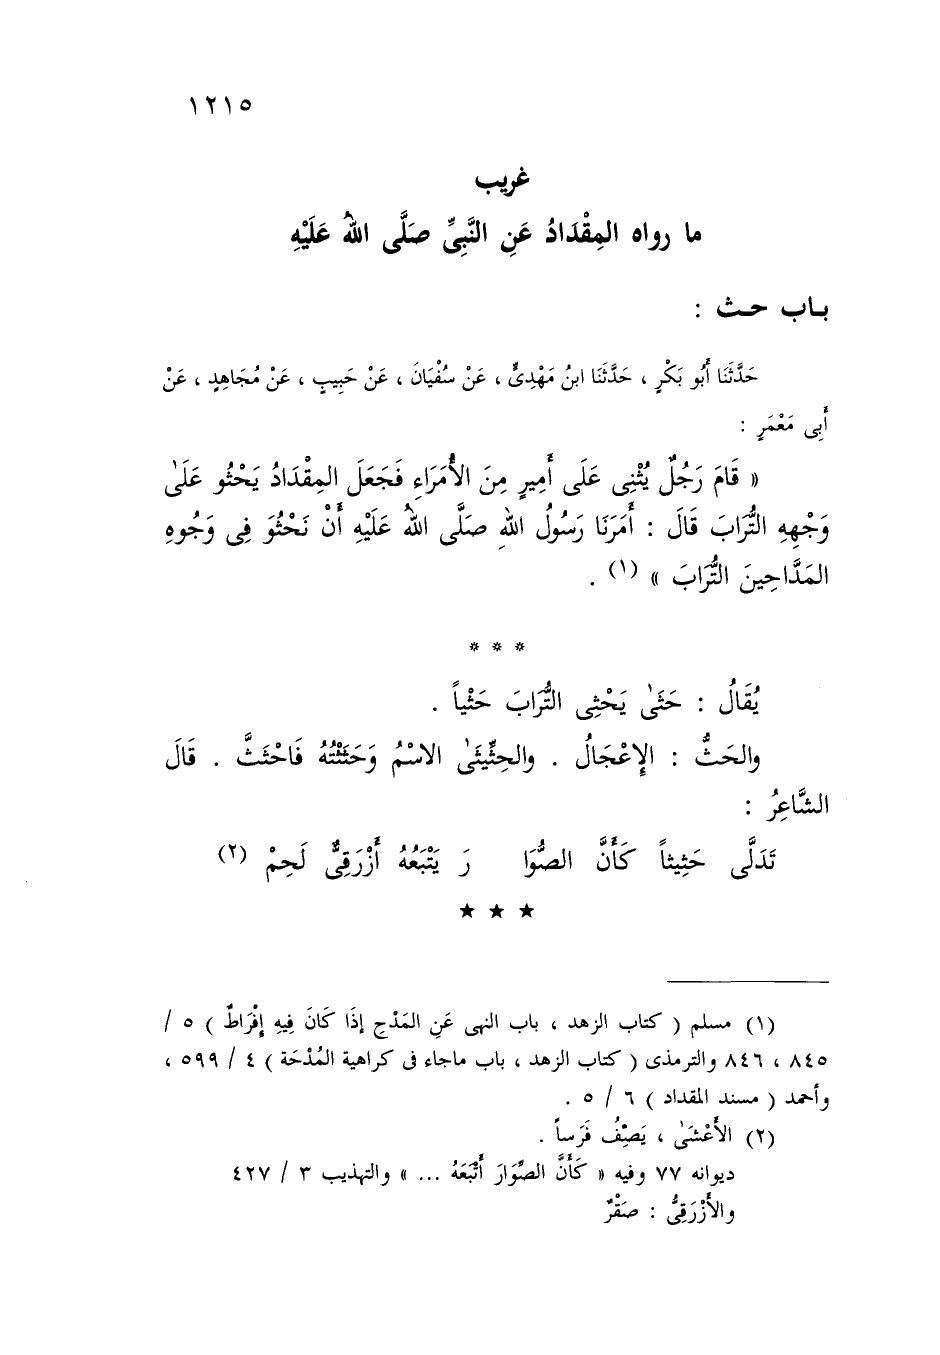 ١٢١٥
غريب
ما رواه المِقْدَادُ عَنِ النَّبِىِّ صَلَّى اللهُ عَلَيْهِ
بـاب حـث :
حَدَّثَنَا أَبُو بَكْرٍ ، حَدَّثَنَا ابنُ مَهْدِىٍّ ، عَنْ سُفْيَانَ ، عَنْ حَبِيبٍ ، عَنْ مُجَاهِدٍ ، عَنْ
أَبِى مَعْمَرٍ :
« قَامَ رَجُلٌ يُثْنِى عَلَى أَمِيرٍ مِنَ الأُمَرَاءِ فَجَعَلَ المِقْدَادُ يَحْثُو عَلَىٰ
وَجْهِهِ التُّرَابَ قَالَ : أَمَرَنَا رَسُولُ اللهِ صَلَّى اللهُ عَلَيْهِ أَنْ نَحْثُوَ فِى وَجُوهِ
المَدَّاحِينَ التُّرَابَ » (١) .
* * *
يُقَالُ : حَثَىٰ يَحْثِى التُّرَابَ حَثْياً .
والحَثُّ : الإِعْجَالُ . والحِثِّيثَىٰ الاسْمُ وَحَثَثْتُهُ فَاحْتَثَّ . قَالَ
الشَّاعِرُ :
تَدَلَّى حَثِيثاً كَأَنَّ الصُّوَا رَ يَتْبَعُهُ أَزْرَقِىٌّ لَحِمْ (٢)
★ ★ ★
(١) مسلم ( كتاب الزهد ، باب النهى عَنِ المَدْحِ إذَا كَانَ فِيهِ إِفْرَاطٌ ) ٥ /
٨٤٥ ، ٨٤٦ والترمذى ( كتاب الزهد ، باب ماجاء فى كراهية المُدْحَة ) ٤ / ٥٩٩ ،
وأحمد ( مسند المقداد ) ٦ / ٥ .
(٢) الأَعْشَىٰ ، يَصِفُ فَرَساً .
ديوانه ٧٧ وفيه « كَأَنَّ الصِّوَارَ أَتْبَعَهُ ... » والتهذيب ٣ / ٤٢٧
والأَزْرَقِىُّ : صَقْرٌ